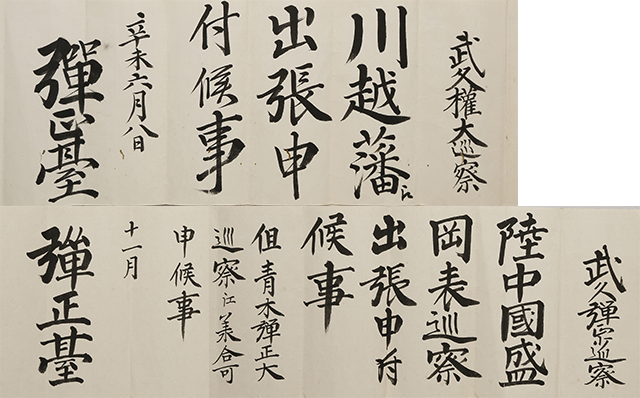 武久權大巡察
川越藩江
出張申
付候事
辛未六月八日
彈正臺
武久彈正巡察
陸中國盛
岡表巡察
出張申付
候事
但青木彈正大
巡察江美合可
申候事
十一月
彈正臺